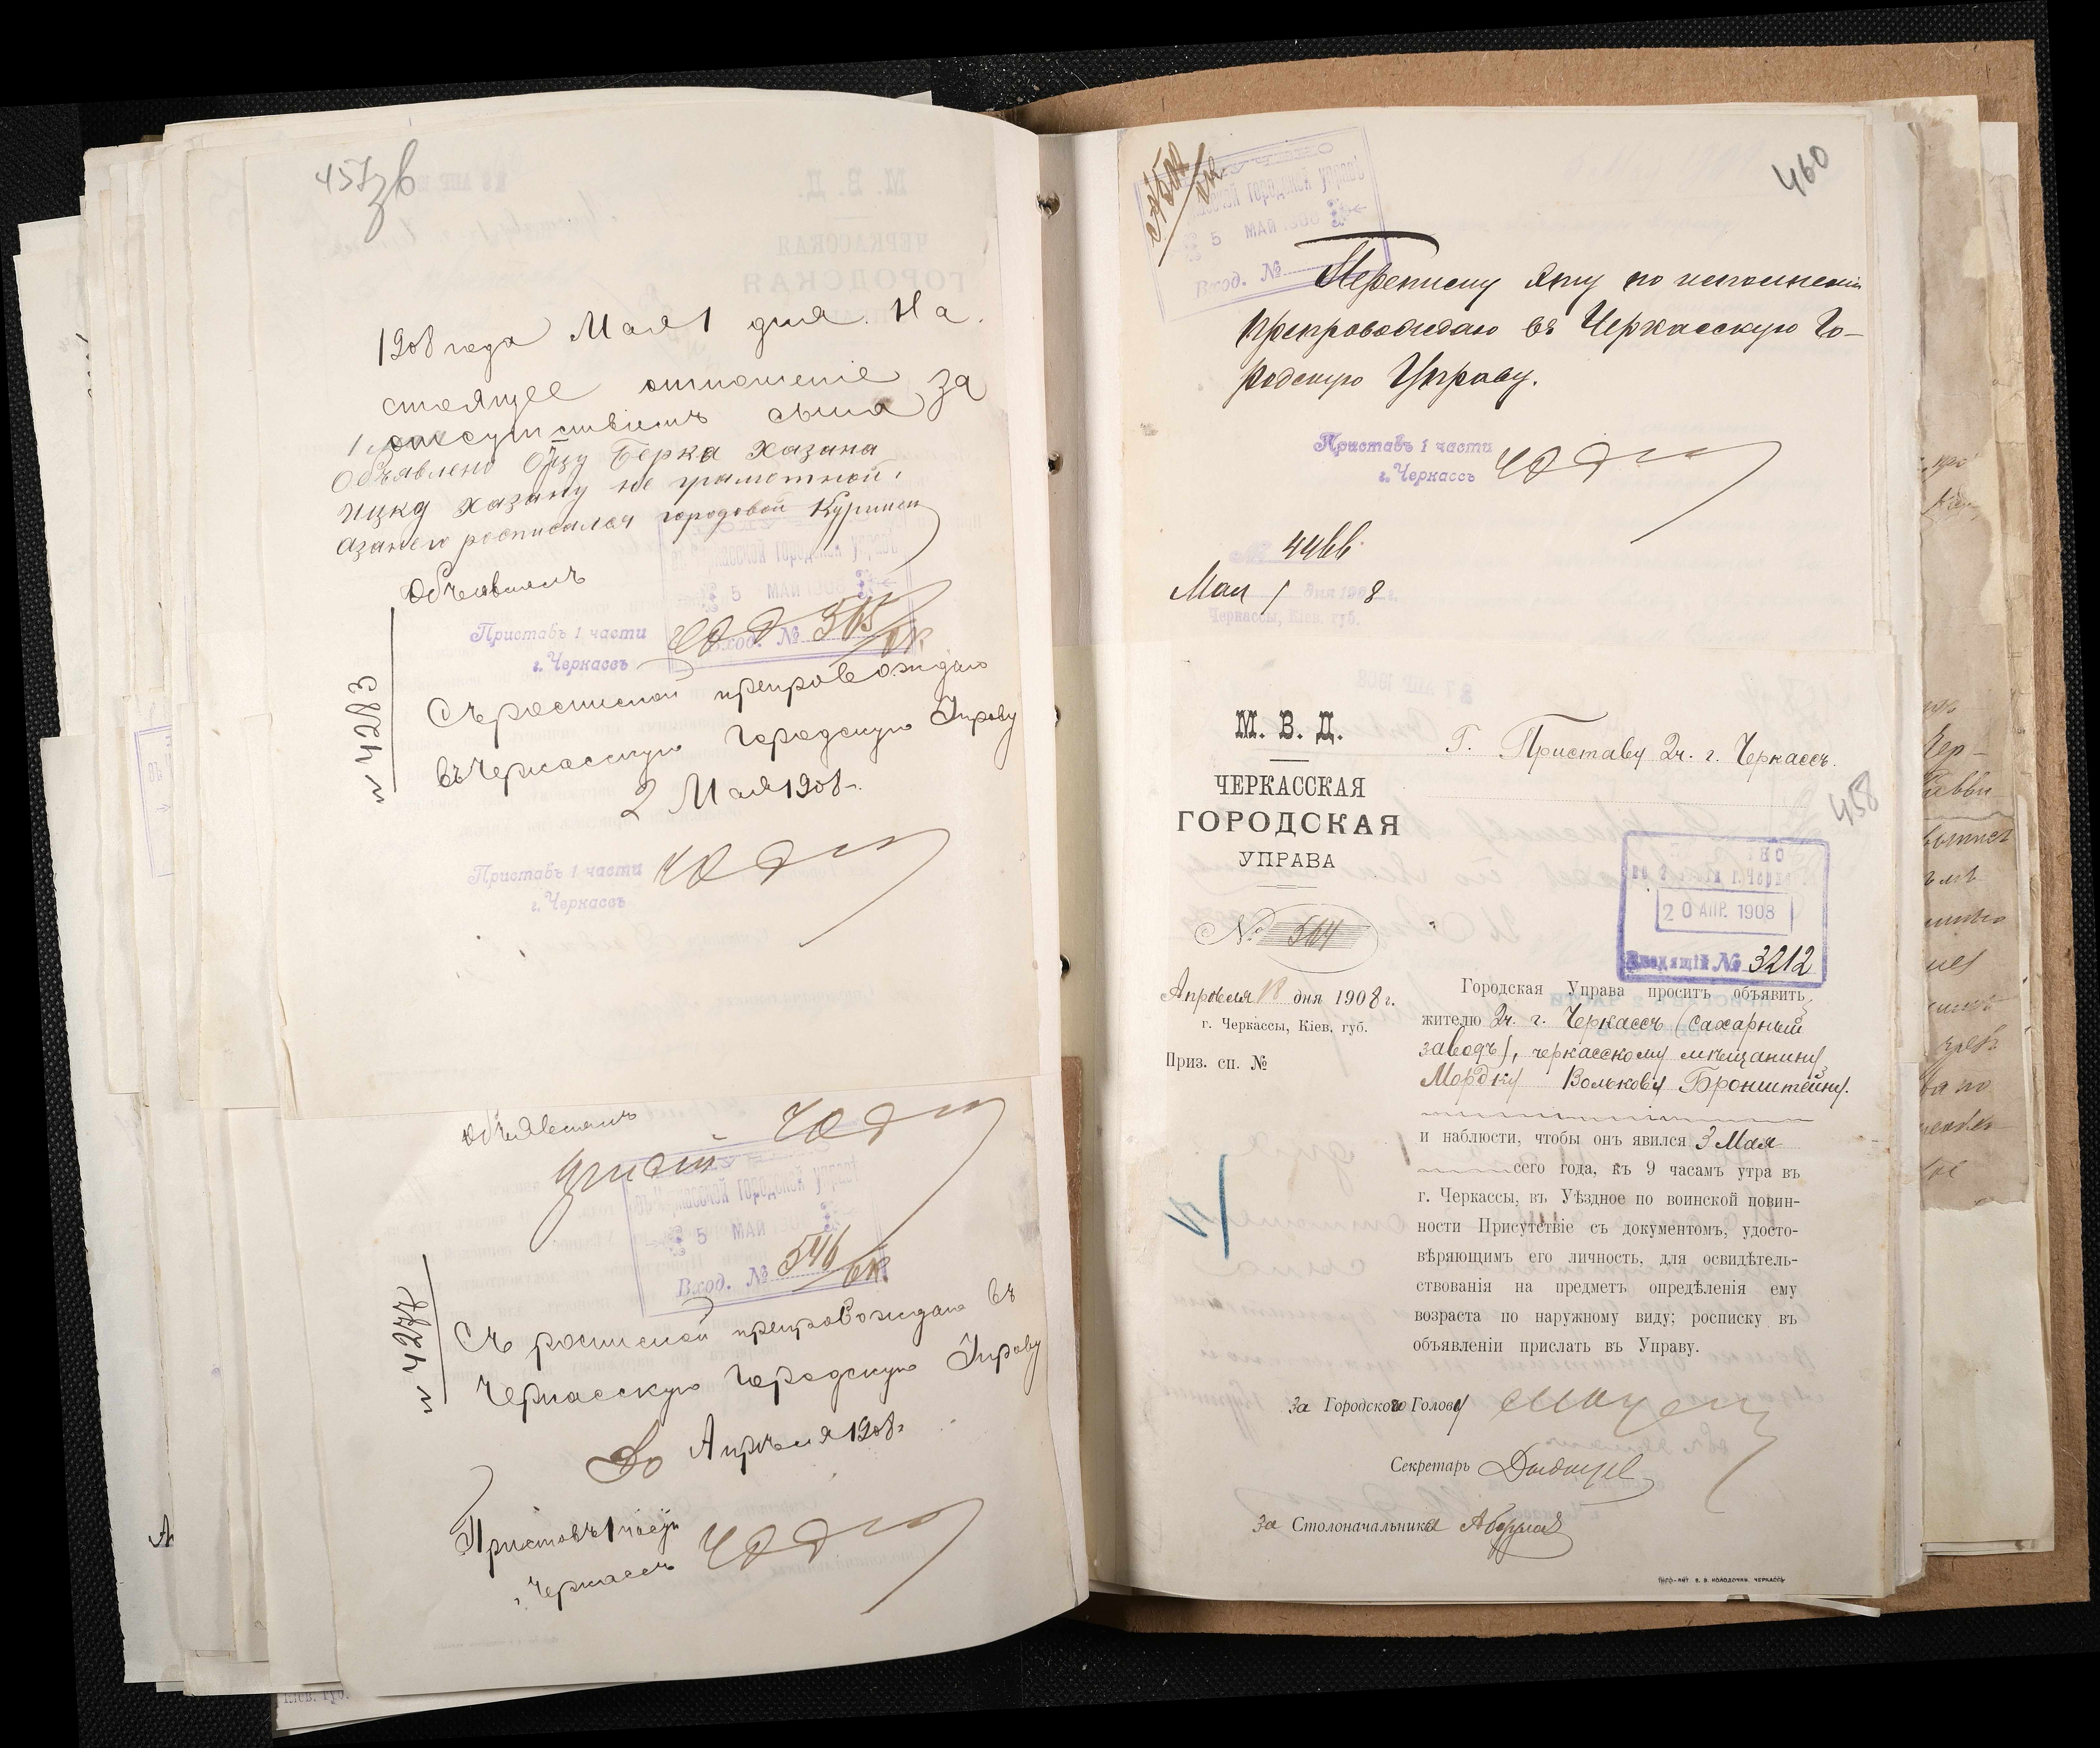 457зв
1908 года Мая 1 дня. На
стоящее отношеніе
за отсутствіемъ сына
Объявлено Отцу Берка Хазана
Ицка Хазану не грамотной,
азанего росписался городовой
Объявилъ
Приставъ 1 части
г. Черкассъ
въ Черкасской Городской Управѣ
5 МАЙ 1908
Вход. № 565
№ 4283
Съ роспиской препровождаю
въ Черкасскую Городскую Управу
2 Мая 1908 г.
Приставъ 1 части
г. Черкассъ
Объявилъ
въ Черкасской Городской Управѣ
5 МАЙ
Вход. № 546
№ 4277
Съ роспиской препровождаю въ
Черкасскую Городскую Управу
30 Апрѣля 1908 г.
Приставъ 1 части
г. Черкассъ
460
Городской Управѣ
5 МАЙ 1908
Вход. №
по исполненіи
препровождаю въ Черкасскую Го-
родскую Управу.
Приставъ 1 части
г. Черкассъ
№ 4466
Мая 1 дня 1908 г.
Черкассы, Кіев. губ.
М. В. Д.
ЧЕРКАССКАЯ
ГОРОДСКАЯ
УПРАВА
№ 564
Апрѣля 18 дня 1908 г.
г. Черкассы, Кіев. губ.
Приз. сп. №
Г. Приставу 2ч. г. Черкассъ.
458
20 АПР. 1908
Входящій № 3212
Городская Управа проситъ объявить
жителю 2ч. г. Черкассъ (сахарный
заводъ), черкасскому мѣщанину
Мордку Волькову Бронштейну.
и наблюсти, чтобы онъ явился 3 Мая
сего года, къ 9 часамъ утра въ
г. Черкассы, въ Уѣздное по воинской повин-
ности Присутствіе съ документомъ, удосто-
вѣряющимъ его личность, для освидѣтель-
ствованія на предметъ опредѣленія ему
возраста по наружному виду; росписку въ
объявленіи прислать въ Управу.
За Городского Голову
Секретарь
За Столоначальника